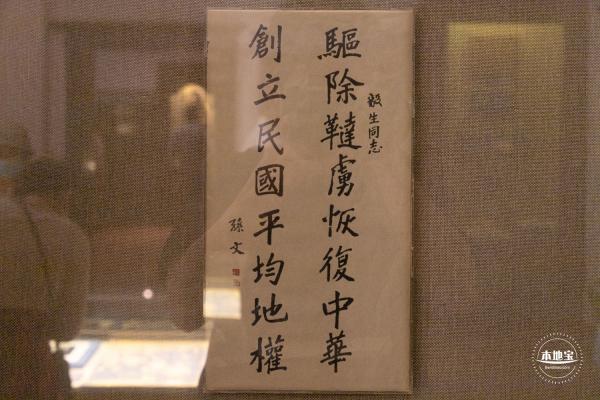 毅生同志
驅除韃虜恢復中華
創立民國平均地權
孫文
本地宝